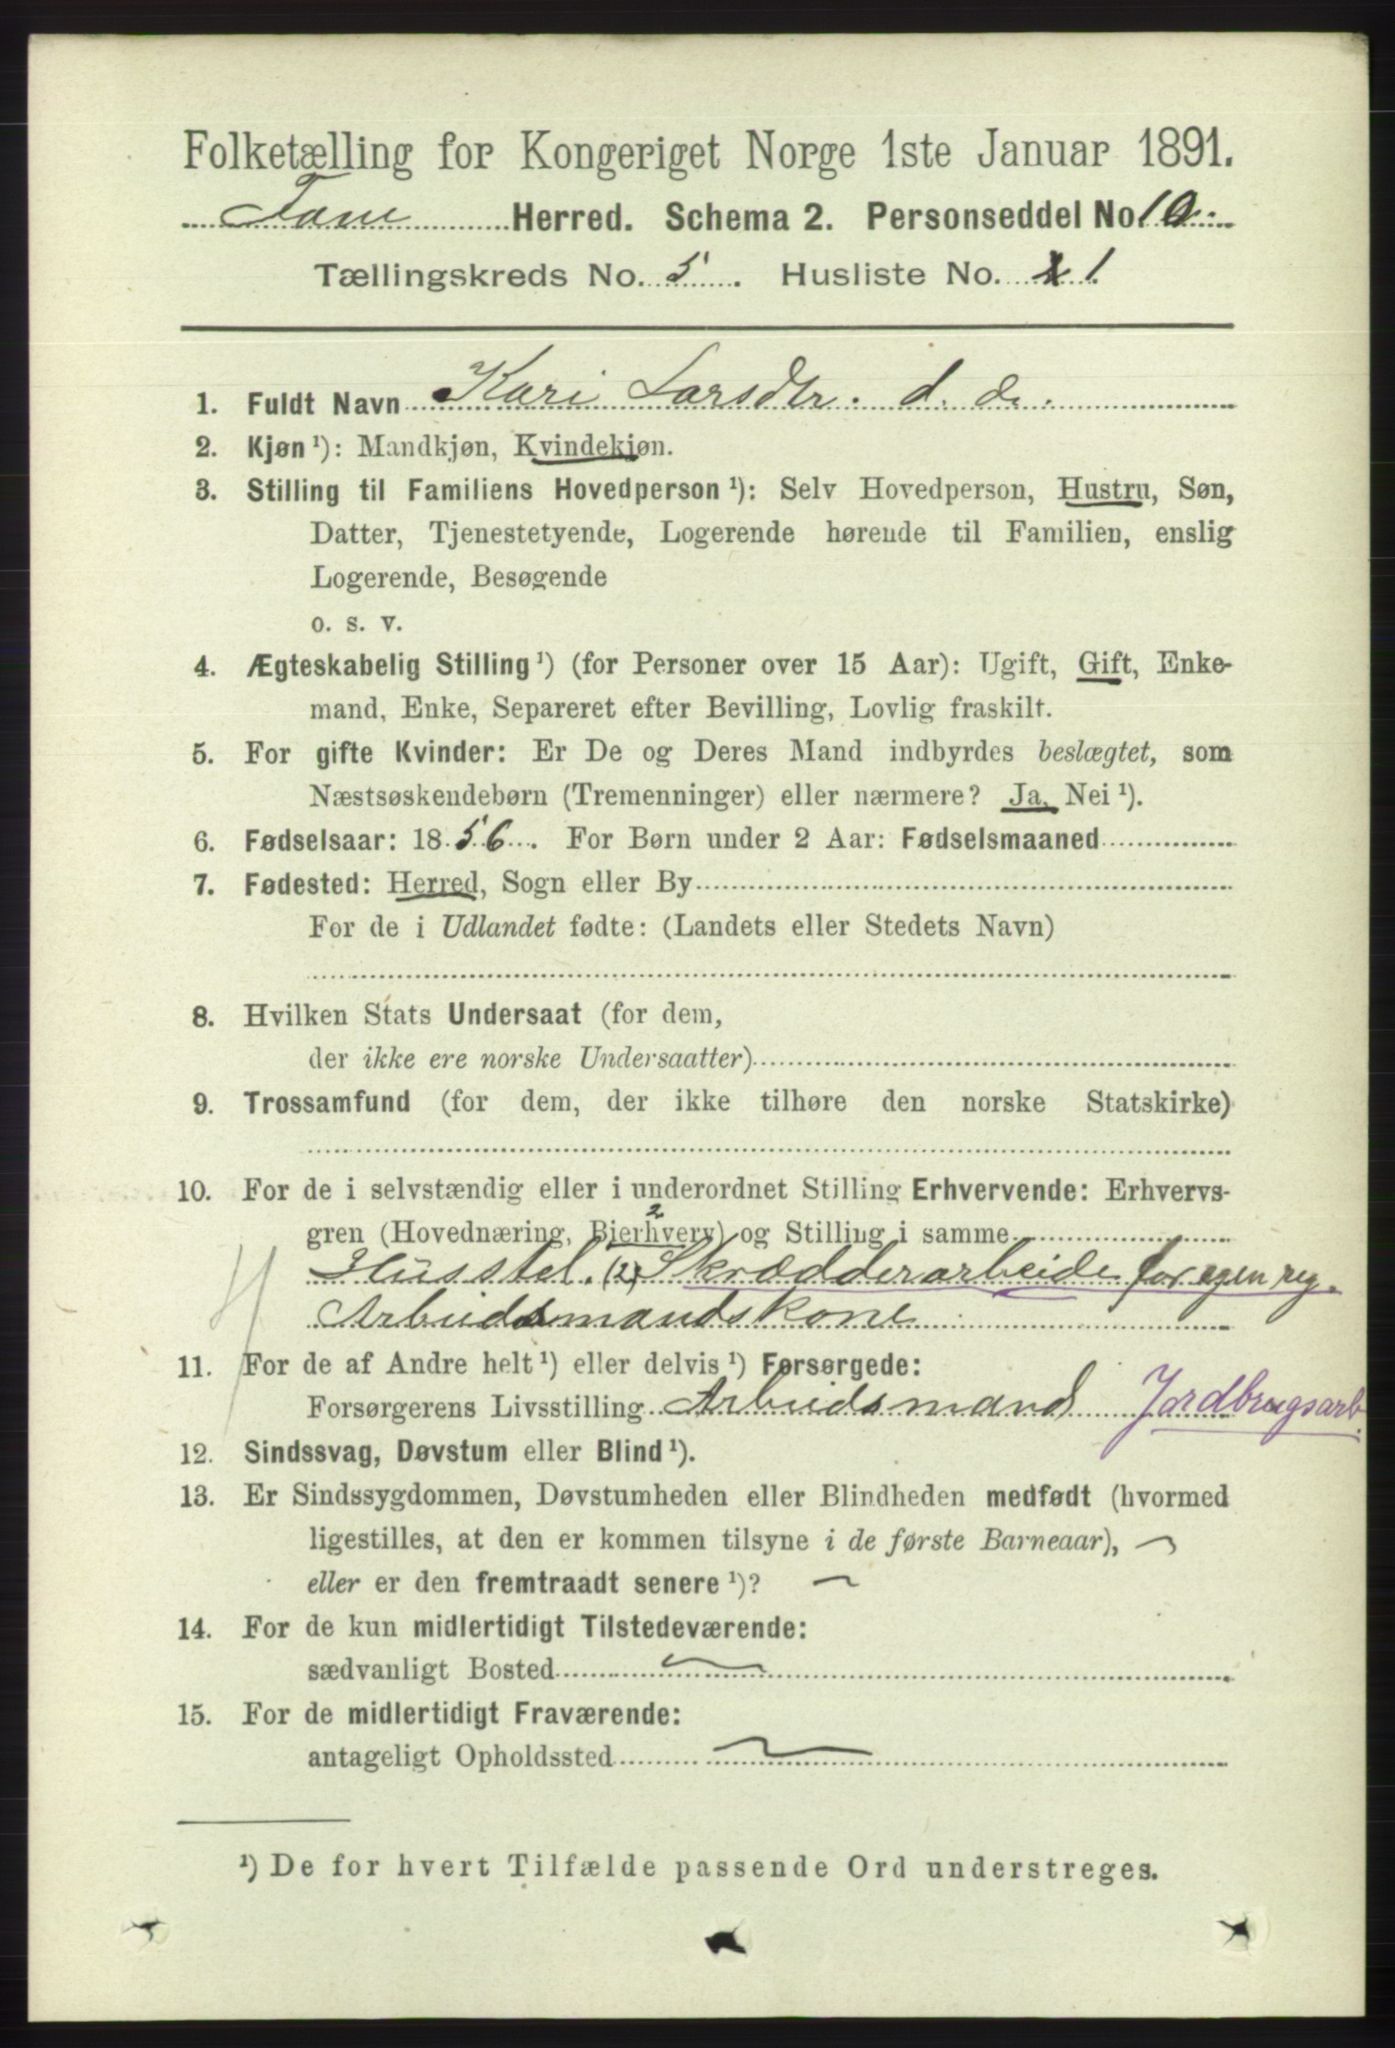 Folketælling for Kongeriget Norge 1ste Januar 1891.
Fane Herred. Schema 2. Personseddel No 10.
Tællingskreds No. 5. Husliste No. 1.
1. Fuldt Navn Kari Larsdtr. d. æ.
2. Kjøn ¹): Mandkjøn, Kvindekjøn.
3. Stilling til Familiens Hovedperson ¹): Selv Hovedperson, Hustru, Søn,
Datter, Tjenestetyende, Logerende hørende til Familien, enslig
Logerende, Besøgende
o. s. v.
4. Ægteskabelig Stilling ¹) (for Personer over 15 Aar): Ugift, Gift, Enke-
mand, Enke, Separeret efter Bevilling, Lovlig fraskilt.
5. For gifte Kvinder: Er De og Deres Mand indbyrdes beslægtet, som
Næstsøskendebørn (Tremenninger) eller nærmere? Ja, Nei ¹).
6. Fødselsaar: 1856. For Børn under 2 Aar: Fødselsmaaned
7. Fødested: Herred, Sogn eller By
For de i Udlandet fødte: (Landets eller Stedets Navn)
8. Hvilken Stats Undersaat (for dem,
der ikke ere norske Undersaatter)
9. Trossamfund (for dem, der ikke tilhøre den norske Statskirke)
10. For de i selvstændig eller i underordnet Stilling Erhvervende: Erhvervs-
gren (Hovednæring, Bierhverv) og Stilling i samme 2
Husstel. (2) Skrædderarbeide for egen reg.
Arbeidsmandskone
11. For de af Andre helt ¹) eller delvis ¹) Forsørgede:
Forsørgerens Livsstilling Arbeidsmand Jordbrugsarb.
12. Sindssvag, Døvstum eller Blind ¹).
13. Er Sindssygdommen, Døvstumheden eller Blindheden medfødt (hvormed
ligestilles, at den er kommen tilsyne i de første Barneaar),
eller er den fremtraadt senere ¹)?
14. For de kun midlertidigt Tilstedeværende:
sædvanligt Bosted
15. For de midlertidigt Fraværende:
antageligt Opholdssted
¹) De for hvert Tilfælde passende Ord understreges.